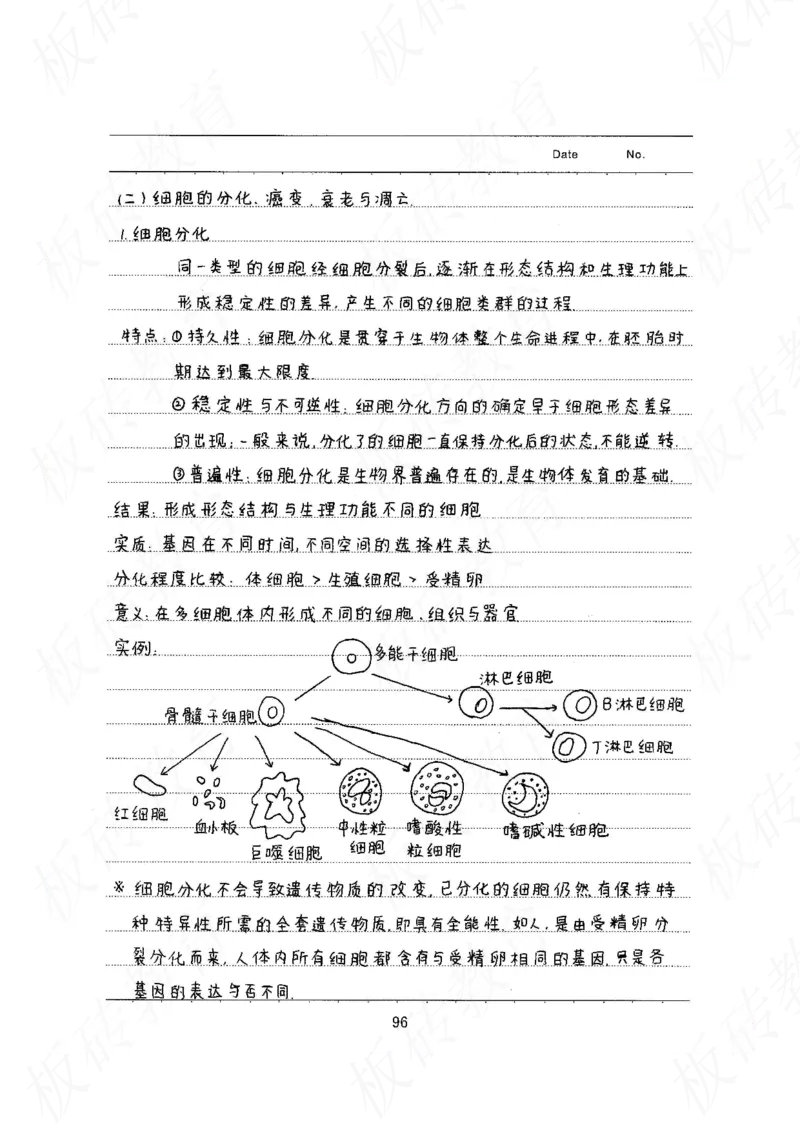 Date No.
(二)细胞的分化、癌变、衰老与凋亡
1.细胞分化
同一类型的细胞经细胞分裂后,逐渐在形态结构和生理功能上
形成稳定性的差异,产生不同的细胞类群的过程.
特点:①持久性:细胞分化是贯穿于生物体整个生命进程中.在胚胎时
期达到最大限度
②稳定性与不可逆性:细胞分化方向的确定早于细胞形态差异
的出现;一般来说,分化了的细胞一直保持分化后的状态,不能逆转.
③普遍性:细胞分化是生物界普遍存在的,是生物体发育的基础.
结果:形成形态结构与生理功能不同的细胞
实质:基因在不同时间,不同空间的选择性表达
分化程度比较:体细胞>生殖细胞>受精卵
意义:在多细胞体内形成不同的细胞、组织与器官
实例:
多能干细胞
淋巴细胞
骨髓干细胞
B淋巴细胞
T淋巴细胞
红细胞
血小板
巨噬细胞
中性粒
细胞
嗜酸性
粒细胞
嗜碱性细胞
※细胞分化不会导致遗传物质的改变,已分化的细胞仍然有保持特
种特异性所需的全套遗传物质,即具有全能性.如人,是由受精卵分
裂分化而来,人体内所有细胞都含有与受精卵相同的基因.只是各
基因的表达与否不同.
96
板砖教育